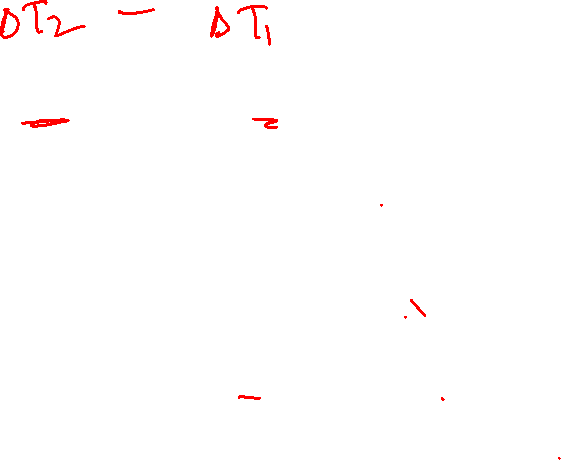 ΔT₂ − ΔT₁